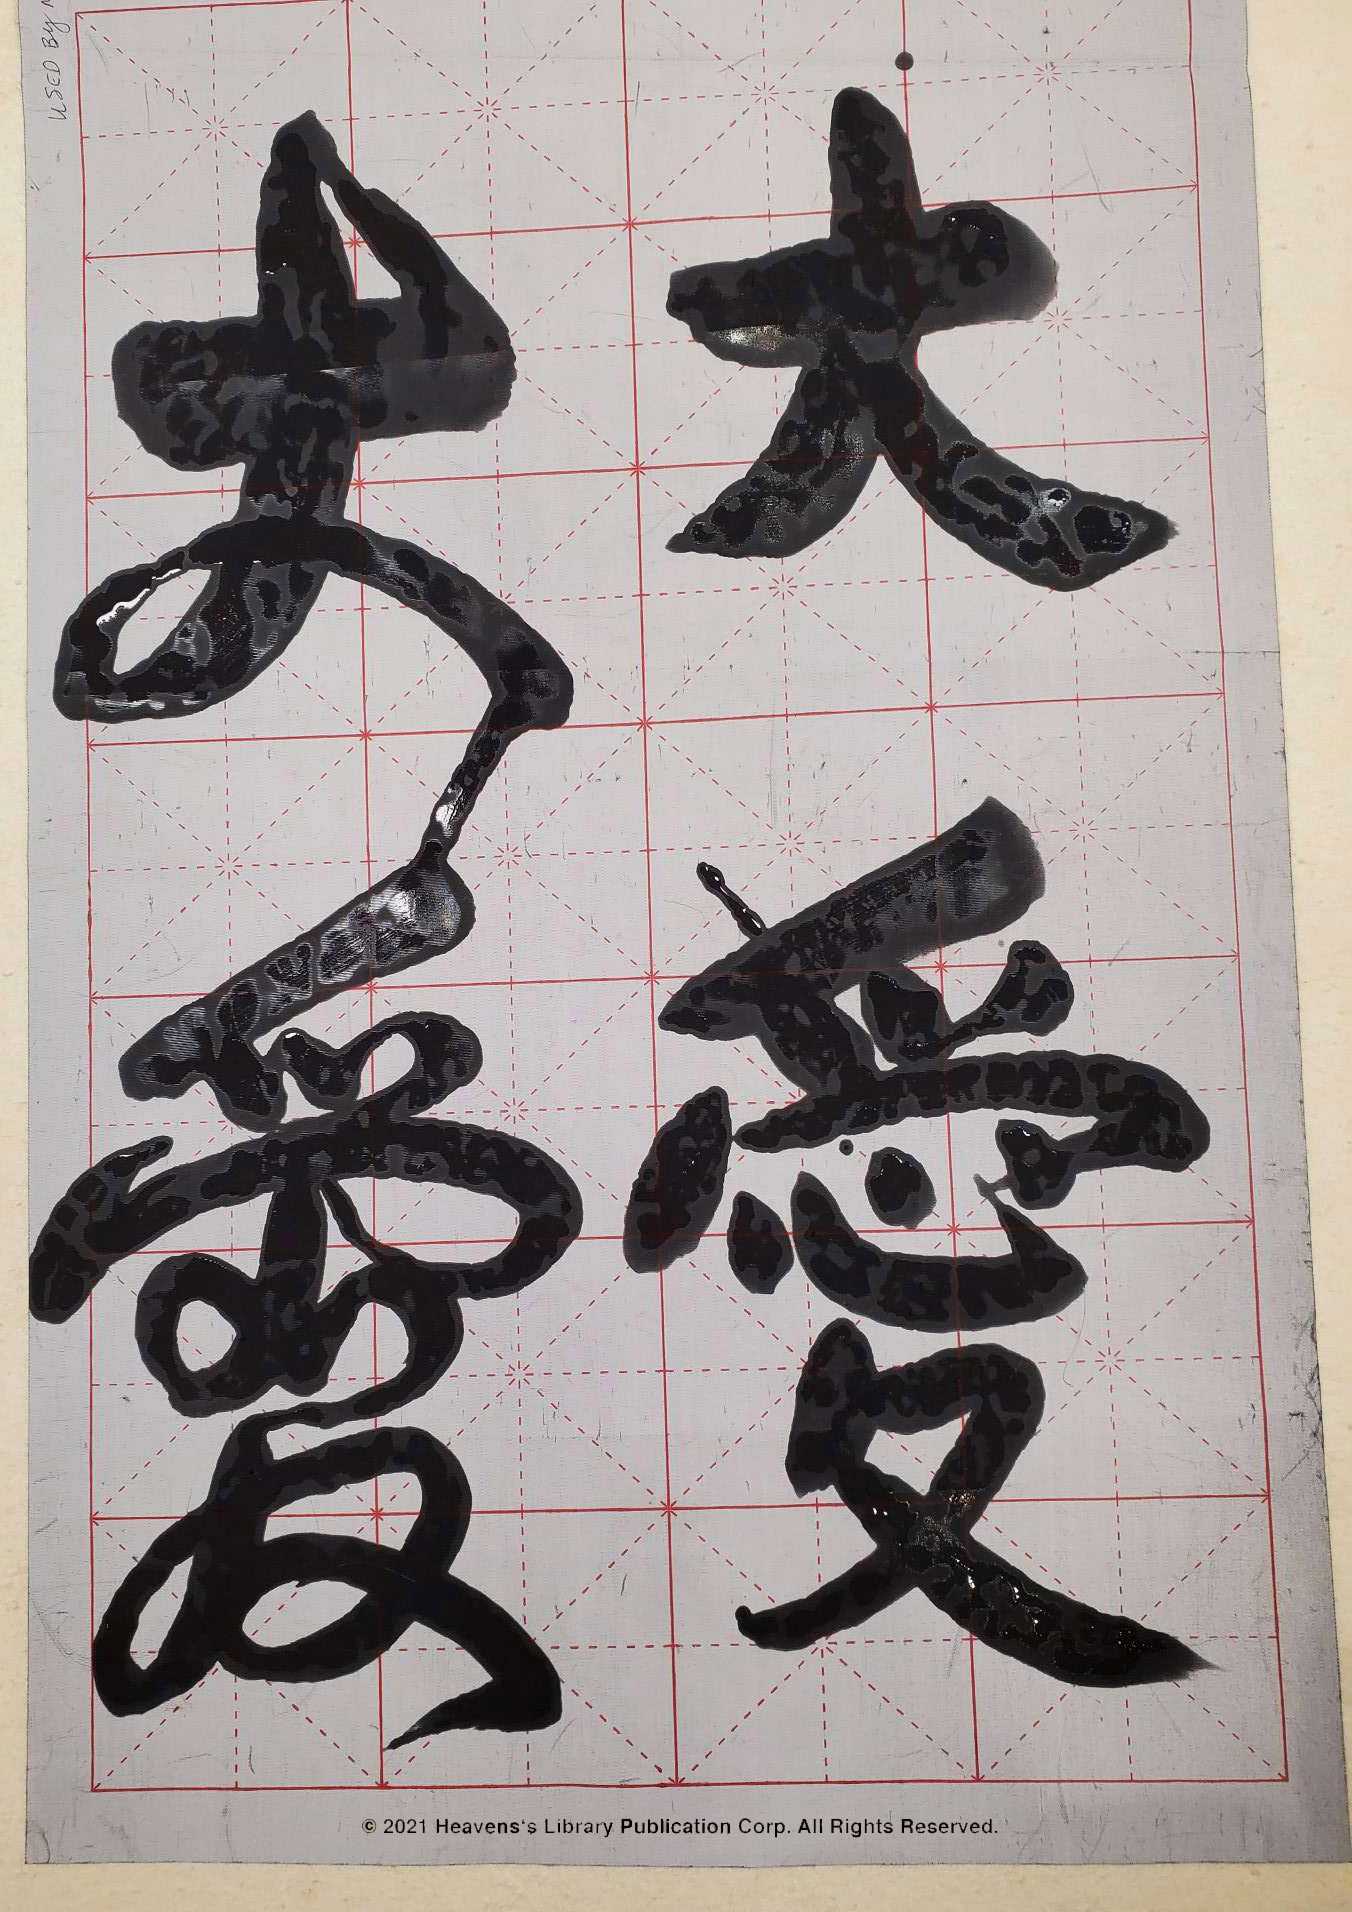 大愛
大愛
USED BY
© 2021 Heavens's Library Publication Corp. All Rights Reserved.